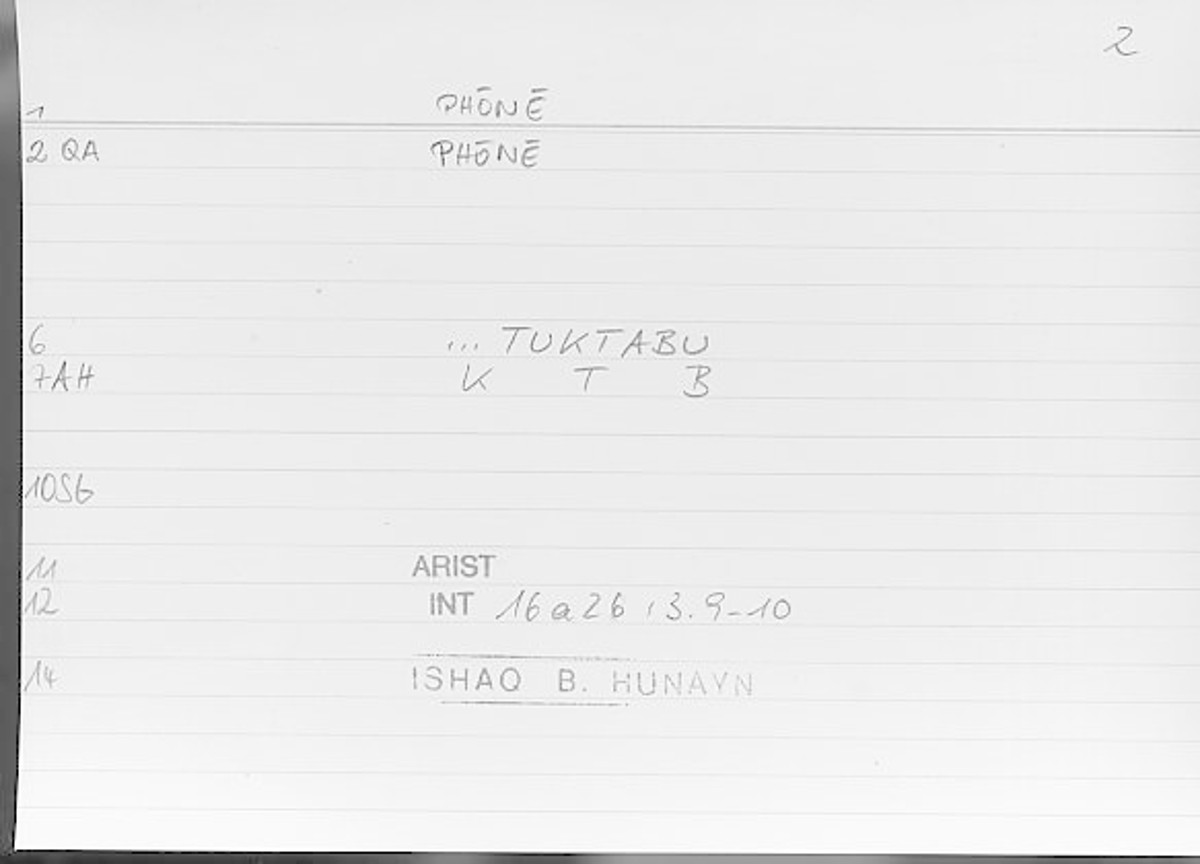 2
1 PHŌNĒ
2 QA PHŌNĒ
6 ... TUKTABU
7AH K T B
10SG
11 ARIST
12 INT 16a26 , 3.9-10
14 ISHAQ B. HUNAYN